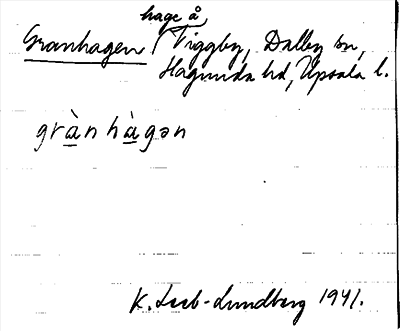 hage å
Granhagen / Viggby, Dalby sn,
Hagunda hd, Upsala l.
grànhàgən
K. Leeb-Lundberg 1941.